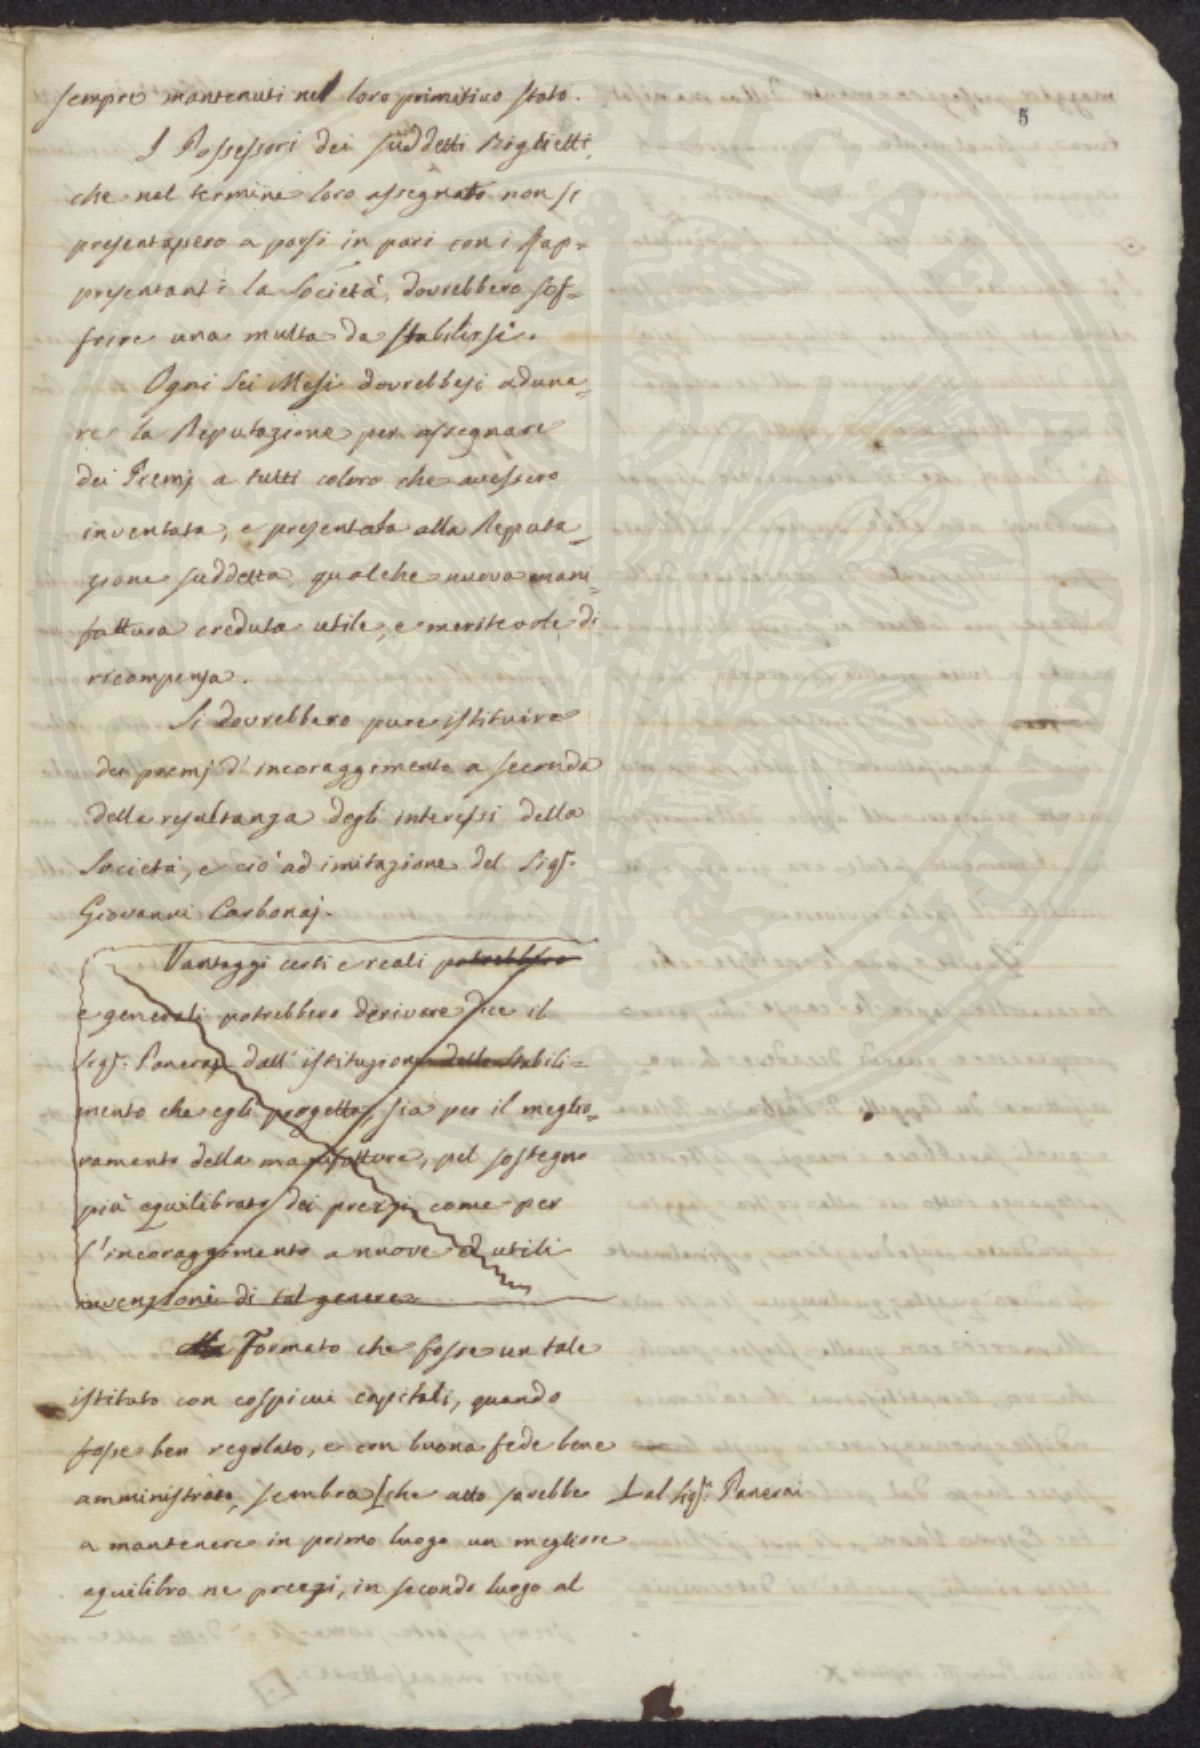 5
sempre mantenuti nel loro primitivo stato.
I Possessori dei suddetti Biglietti,
che nel termine loro assegnato non si
presentassero a porsi in pari con i Rap=
presentanti la Società, dovrebbero sof=
frire una multa da stabilirsi.
Ogni sei Mesi dovrebbesi aduna=
re la Deputazione per assegnare
dei Premj a tutti coloro che avessero
inventata, e presentata alla Deputa=
zione suddetta qualche nuova mani=
fattura creduta utile, e meritevole di
ricompensa.
Si dovrebbero pure istituire
dei premj d'incoraggimento a seconda
della resultanza degli interessi della
Società, e ciò ad imitazione del Sigr.
Giovanni Carbonaj.
Vantaggi certi e reali potrebbero
e generali potrebbero derivare dice il
Sigr. Panerai dall'istituzione dello stabili=
mento che egli progetta, sia per il meglio=
ramento della manifatture, pel sostegno
più equilibrato dei prezzi come per
l'incoraggimento a nuove ed utili
invenzioni di tal genere
Ma Formato che fosse un tale
istituto con cospicui capitali, quando
fosse ben regolato, e con buona fede bene
amministrato, sembra [che atto sarebbe
[al Sigr. Panerai
a mantenere in primo luogo un megliore
equilibro ne prezzi, in secondo luogo al